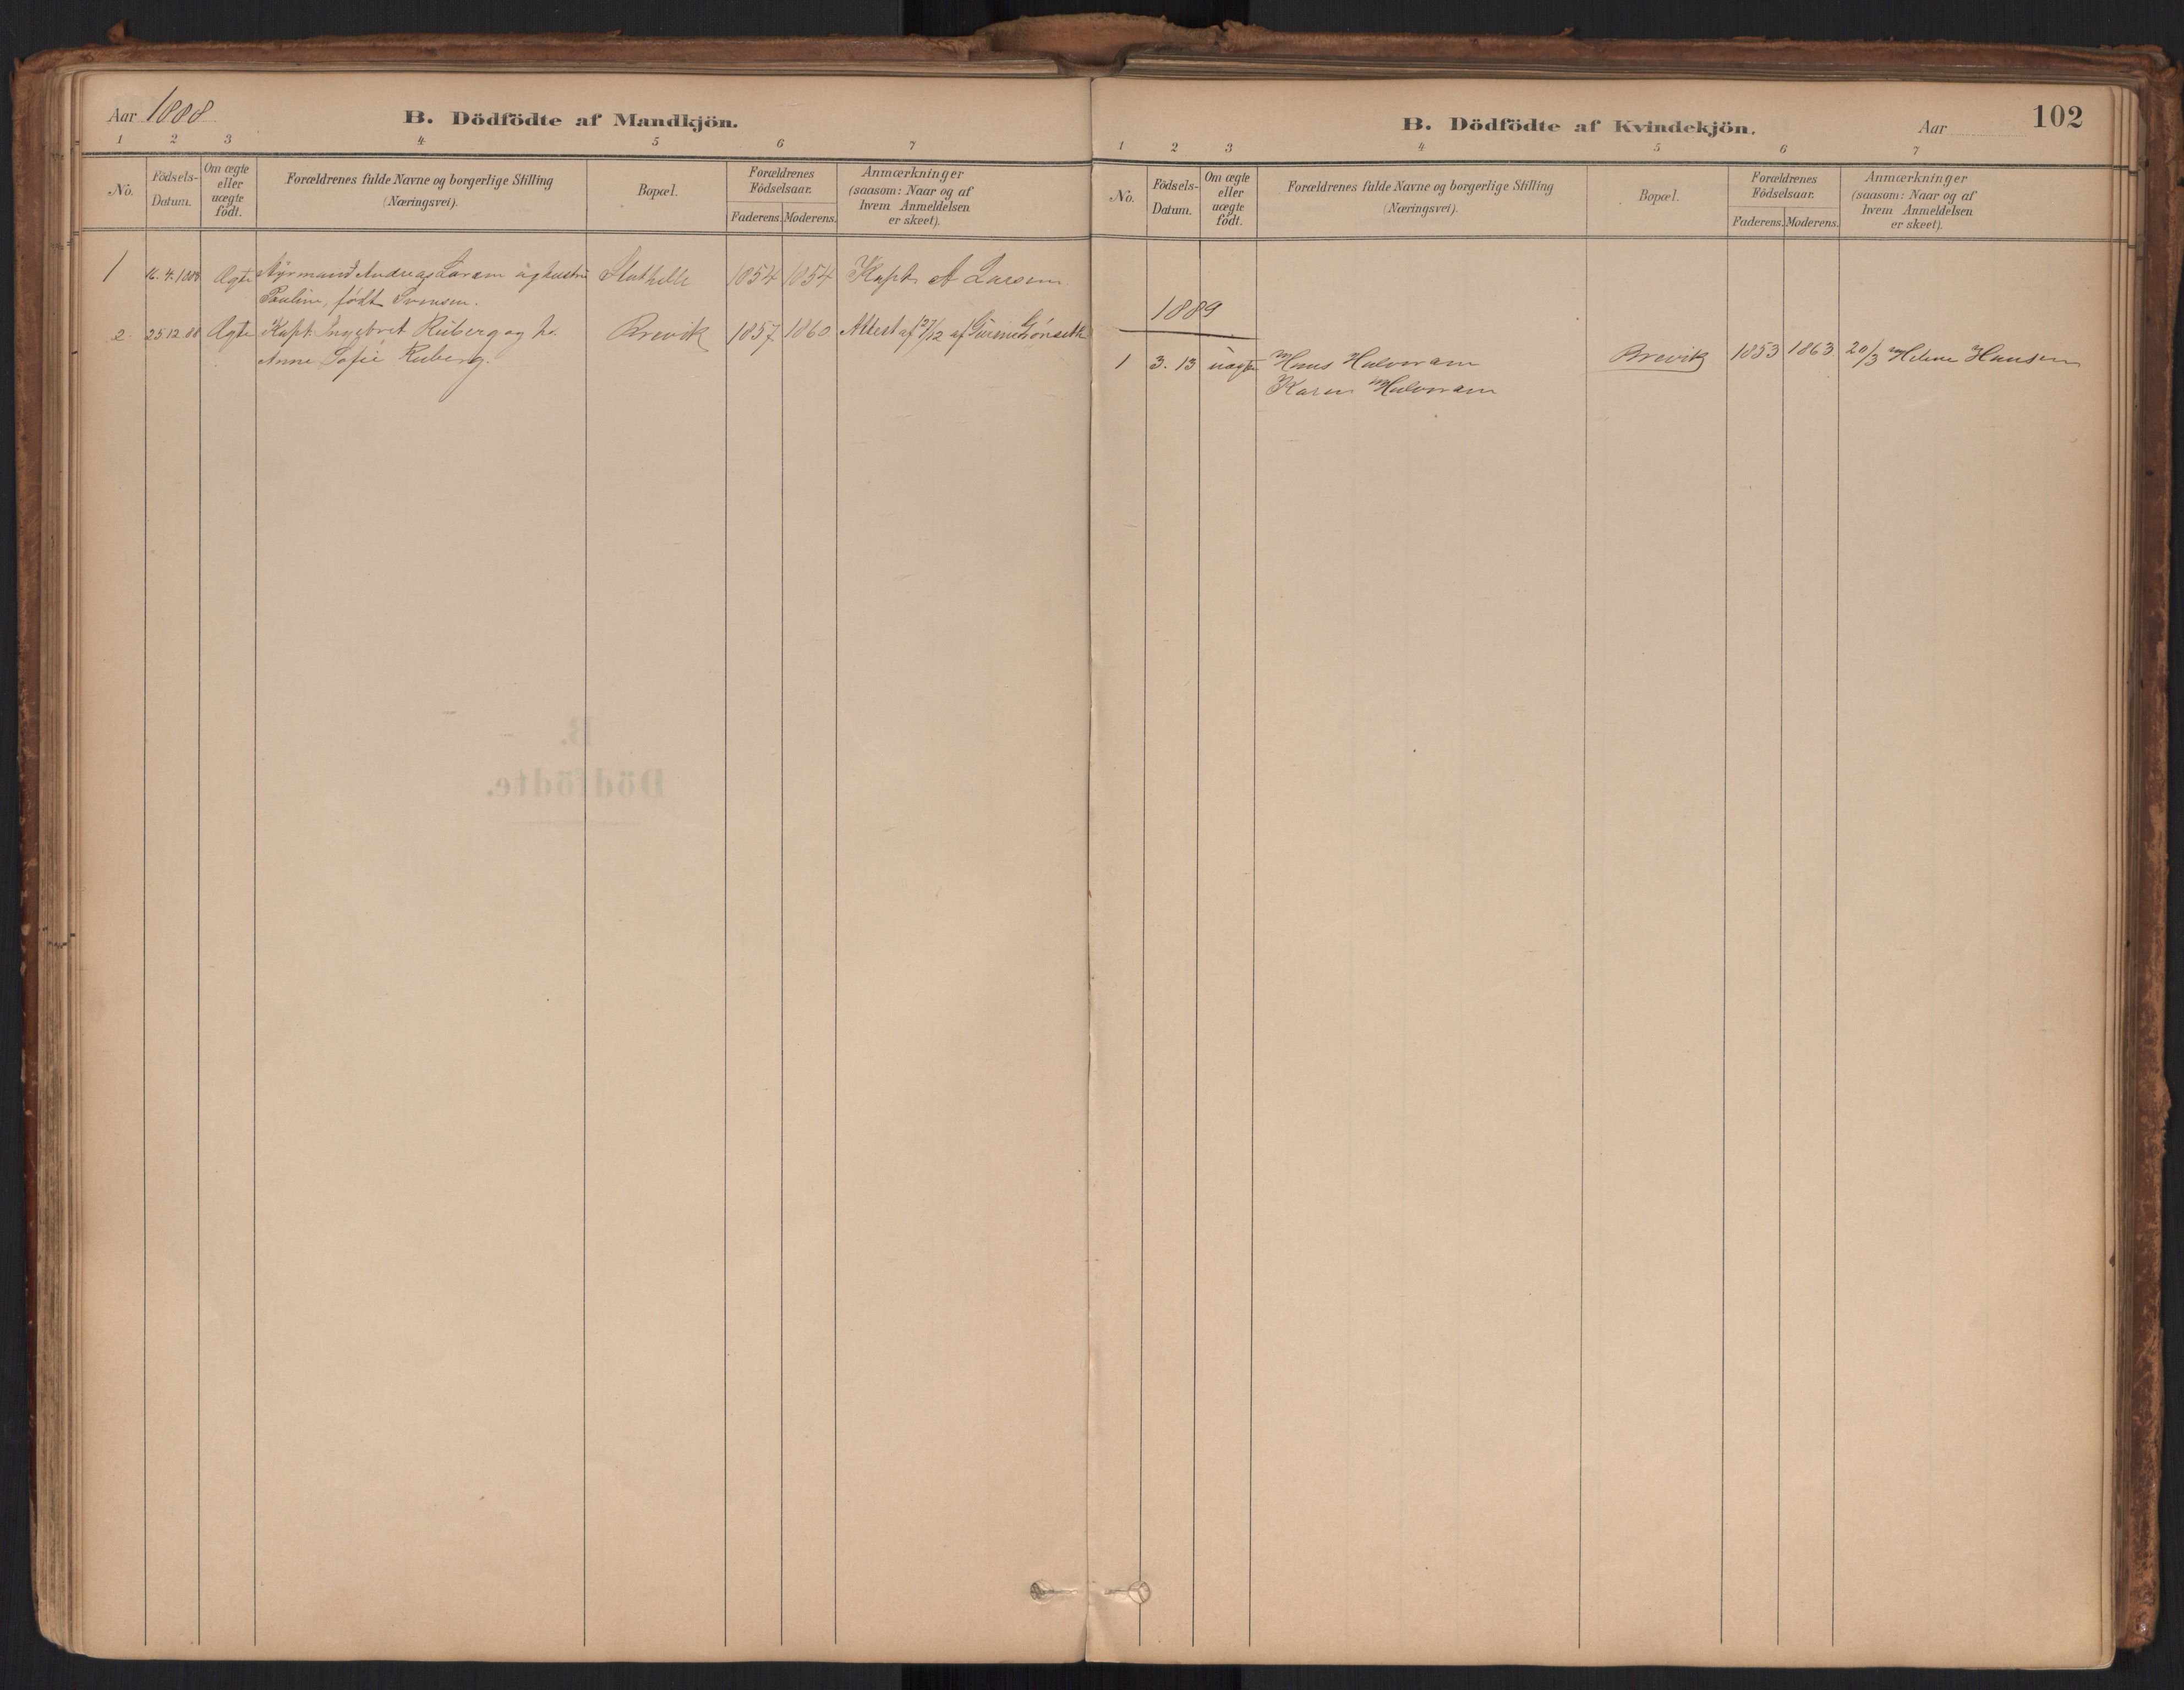 Aar 1888
B. Dödfödte af Mandkjön.
1 2 3 4 5 6 7
No.
Födsels-
Datum.
Om ægte
eller
uægte
födt.
Forældrenes fulde Navne og borgerlige Stilling
(Næringsvei).
Bopæl.
Forældrenes
Födselsaar.
Faderens. Moderens.
Anmærkninger
(saasom: Naar og af
hvem Anmeldelsen
er skeet).
1 16. 4. 1888 Ægte Styrmand Andreas Larsen og hustru Stathelle 1854 1854 Kapt. A Larsen
Pauline, født Svensen.
2 25 12 88 Ægte Kapt. Engebret Ruberg og h. Brevik 1857 1860 Attest af 27/12 af
Anne Sofie Ruberg.
B. Dödfödte af Kvindekjön.
Aar
102
1 2 3 4 5 6 7
No.
Födsels-
Datum.
Om ægte
eller
uægte
födt.
Forældrenes fulde Navne og borgerlige Stilling
(Næringsvei).
Bopæl.
Forældrenes
Födselsaar.
Faderens. Moderens.
Anmærkninger
(saasom: Naar og af
hvem Anmeldelsen
er skeet).
1889
1 3. 13 uægte Hans Halvorsen Brevik 1853 1863 20/3 Helene Hansen
Karen Halvorsen
B.
Dödfödte.